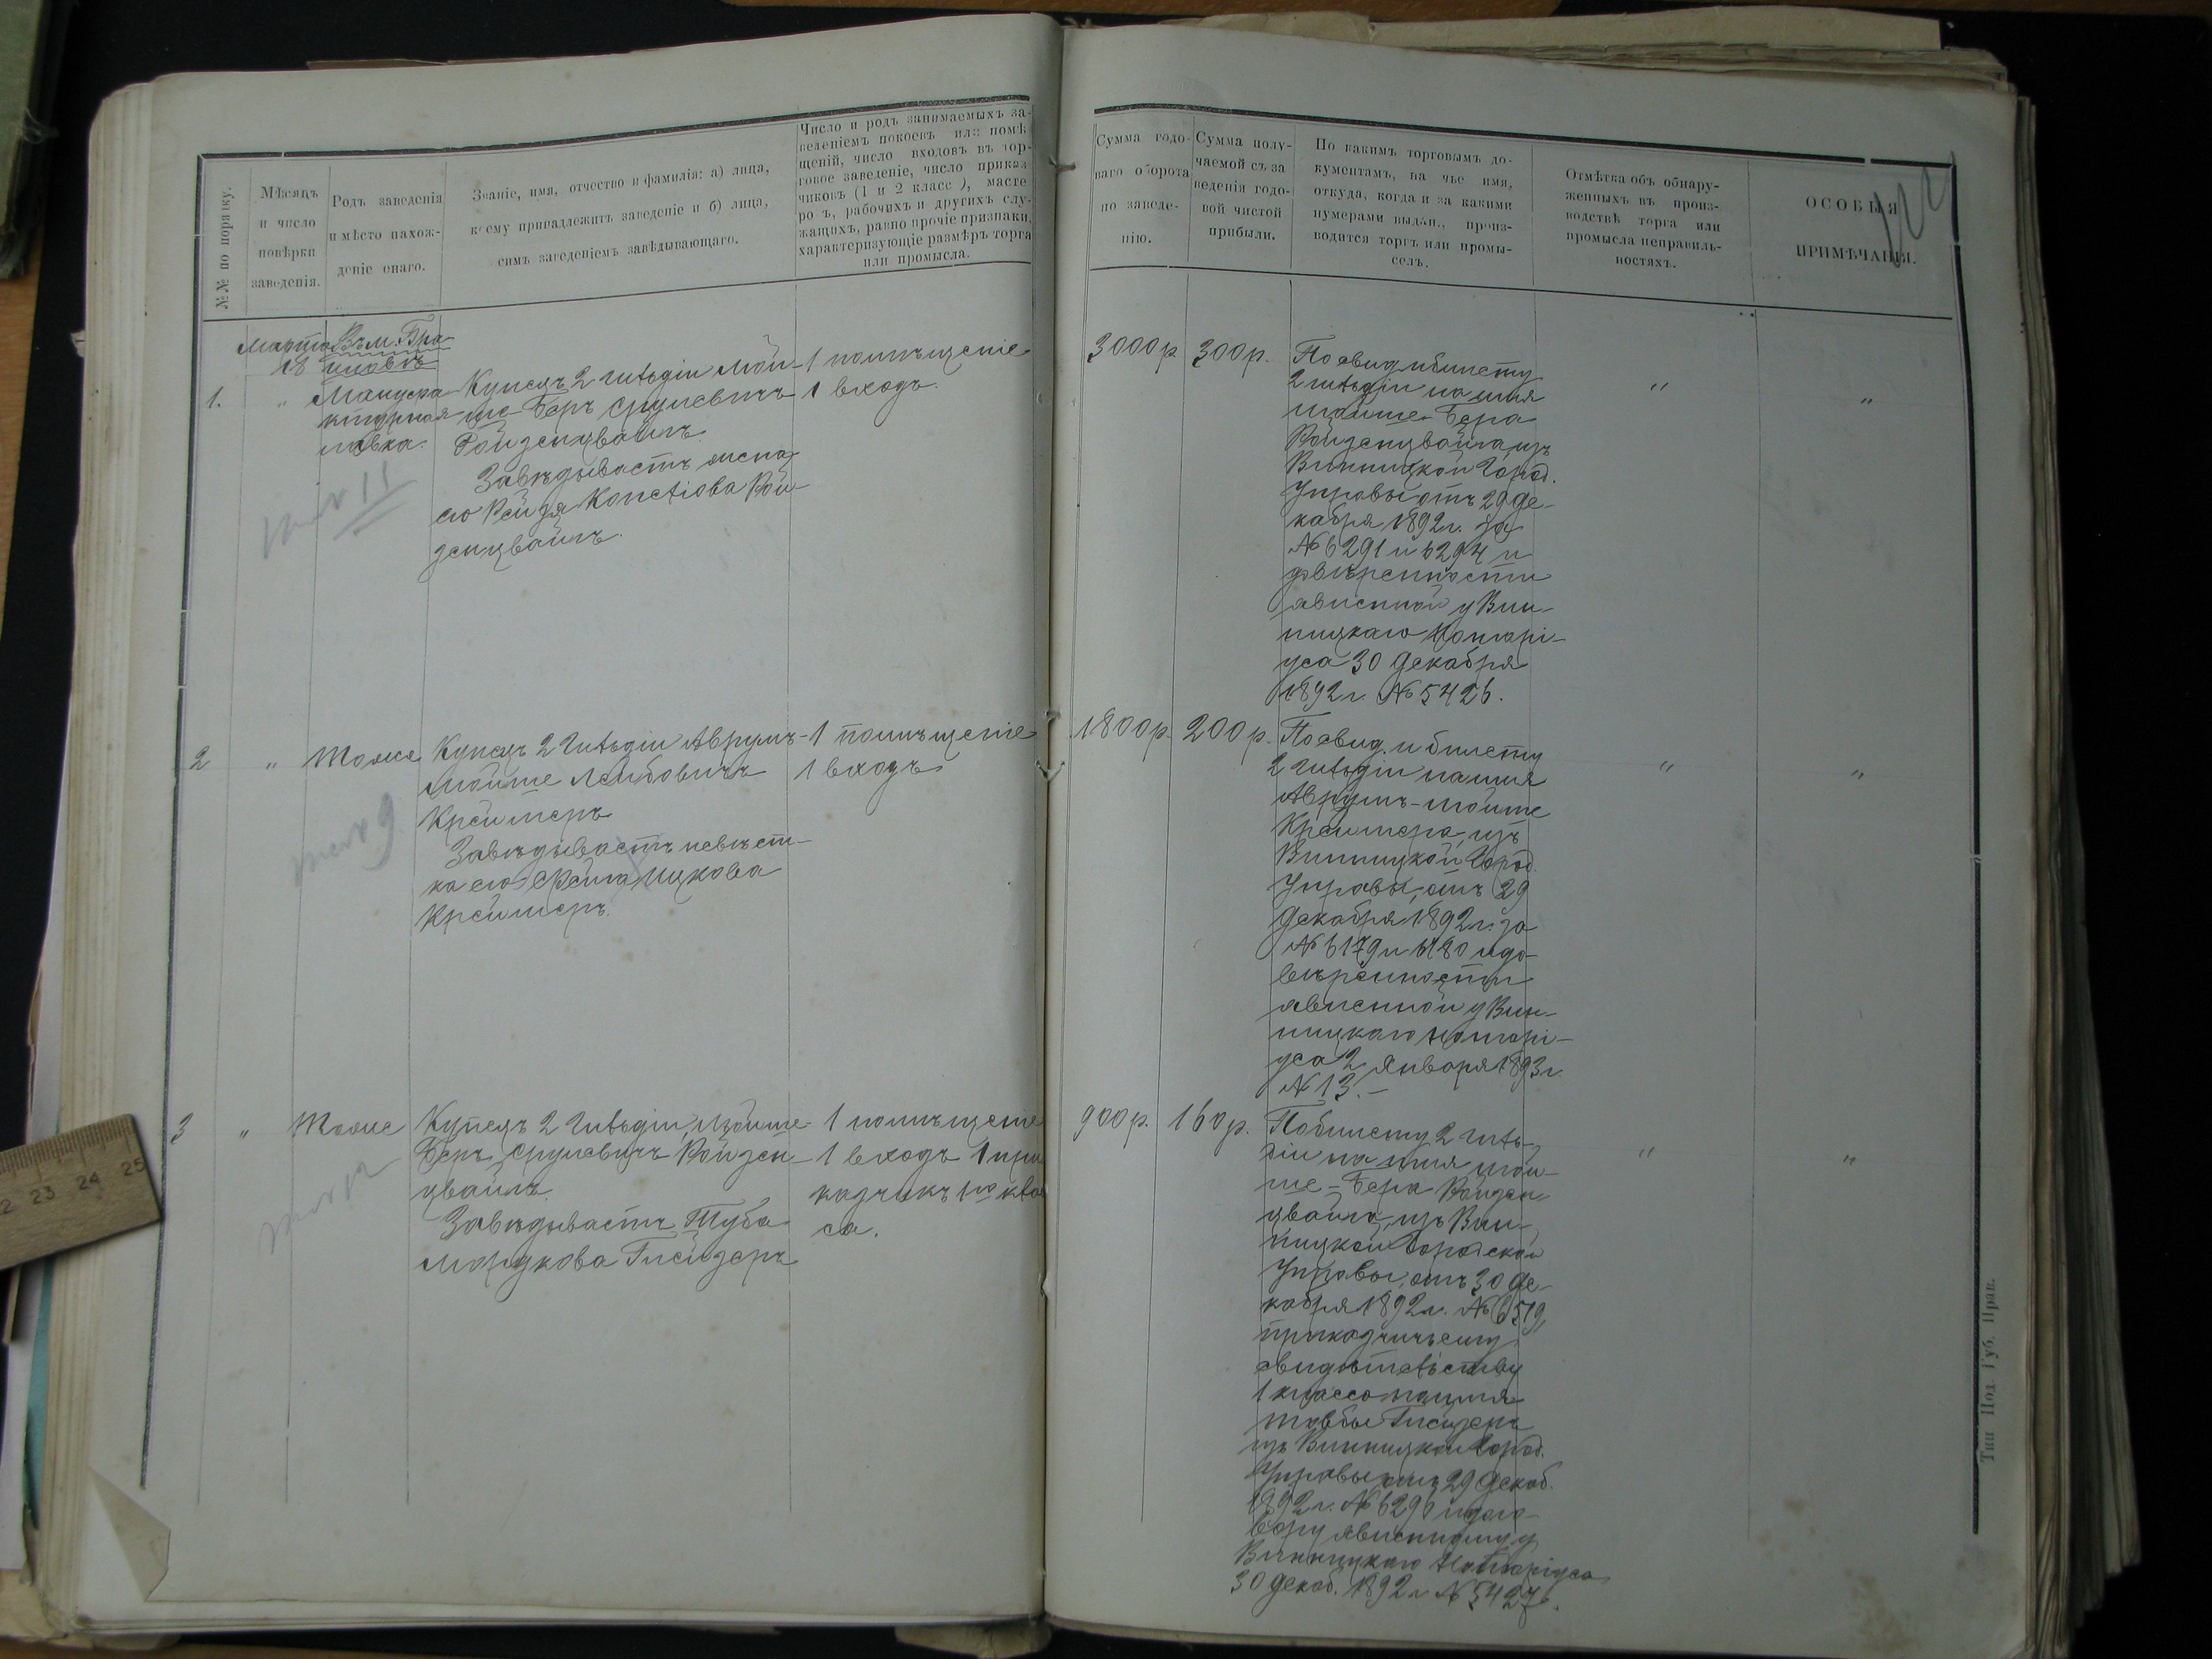 №№ по порядку.
Мѣсяцъ
и число
повѣрки
заведенія.
Родъ заведенія
и мѣсто нахож-
деніе онаго.
Званіе, имя, отчество и фамилія: а) лица,
коему принадлежитъ заведеніе и б) лица,
симъ заведеніемъ завѣдывающаго.
Число и родъ занимаемыхъ за-
веденіемъ покоевъ или помѣ-
щеній, число входовъ въ тор-
говое заведеніе, число приказ-
чиковъ (1 и 2 класс), масте
ро ъ, рабочихъ и другихъ слу-
жащихъ, равно прочіе признаки,
характеризующіе размѣръ торга
или промысла.
Сумма годо-
ваго оборота
по заведе-
нію.
Сумма полу-
чаемой съ за
веденія годо-
вой чистой
прибыли.
По какимъ торговымъ до-
кументамъ, на чье имя,
откуда, когда и за какими
нумерами выдан., произ-
водится торгъ или промы-
селъ.
Отмѣтка объ обнару-
женныхъ въ произ-
водствѣ торга или
промысла неправиль-
ностяхъ.
ОСОБЫЯ
ПРИМѢЧАНІЯ.
Марта
18
Въ м. Бра-
иловѣ
1.
"
Мануфа
ктурная
лавка.
Купецъ 2 гильдіи Мой-
ше-Беръ Срулевичъ
Ройзенцвайгъ
Завѣдываетъ жена
его Рейзя Копелiова Рой-
зенцвайгъ.
1 помѣщеніе
1 входъ.
3000р.
300р.
По свид. и билету
2 гильдіи на имя
Мойше-Бера
Ройзенцвайга, изъ
Винницкой Город.
Управы отъ 29 Де-
кабря 1892 г. за
№ 6291 и 6294 и
довѣренности
явленной у Вин-
ницкаго Нотарі-
уса 30 Декабря
1892 г. № 5426.
"
"
2
"
Тоже
Купецъ 2 Гильдіи Аврумъ-
Мойше Лейбовичъ
Креймеръ
Завѣдываетъ невѣст-
ка его Фейга Ицкова
Креймеръ.
1 помѣщеніе
1 входъ
1800р.
200р.
По свид. и билету
2 Гильдіи на имя
Аврумъ-Мойше
Креймера, изъ
Винницкой Город.
Управы, отъ 29
Декабря 1892 г. за
№ 6179 и 6180 и до-
вѣренности
явленной у Вин-
ницкаго Нотарі-
уса 2 Января 1893 г.
№ 13.-
"
"
3
"
Тоже
Купецъ 2 Гильдіи Мойше-
Беръ Срулевичъ Ройзен-
цвайгъ
Завѣдываетъ Туба
Мордкова
1 помѣщеніе
1 входъ 1 при
казчикъ 1го клас
са.
900р.
160р.
По билету 2 Гиль-
діи на имя Мой-
ше-Бера Ройзен-
цвайга, изъ Вин-
ницкой Городской
Управы, отъ 30 Де-
кабря 1892 г. № 6519,
приказчичьему
свидѣтельству
1 класса на имя
изъ Винницкой Город.
Управы отъ 29 Декаб.
1892 г. № 6296 и дого-
вору явленному у
Винницкаго Нотаріуса
30 Декаб. 1892 г. № 5427.
"
"
Тип. Под. Губ. Прав.
22 23 24 25